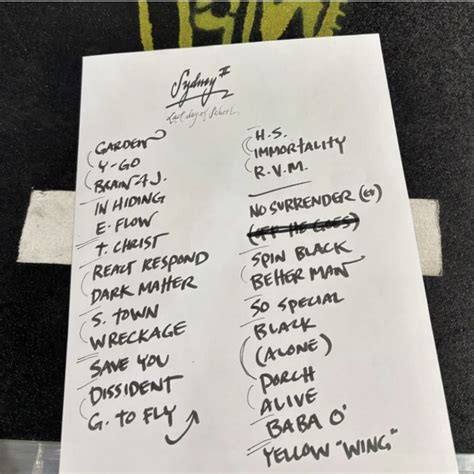 Sydney II
Last day of School.
GARDEN
Y-GO
BRAIN 4 J.
IN HIDING
E. FLOW
T. CHRIST
REACT RESPOND
DARK MATTER
S. TOWN
WRECKAGE
SAVE YOU
DISSIDENT
G. TO FLY
H.S.
IMMORTALITY
R.V.M.
NO SURRENDER (EV)
(OFF HE GOES)
SPIN BLACK
BETTER MAN
SO SPECIAL
BLACK
(ALONE)
PORCH
ALIVE
BABA O'
YELLOW "WING"